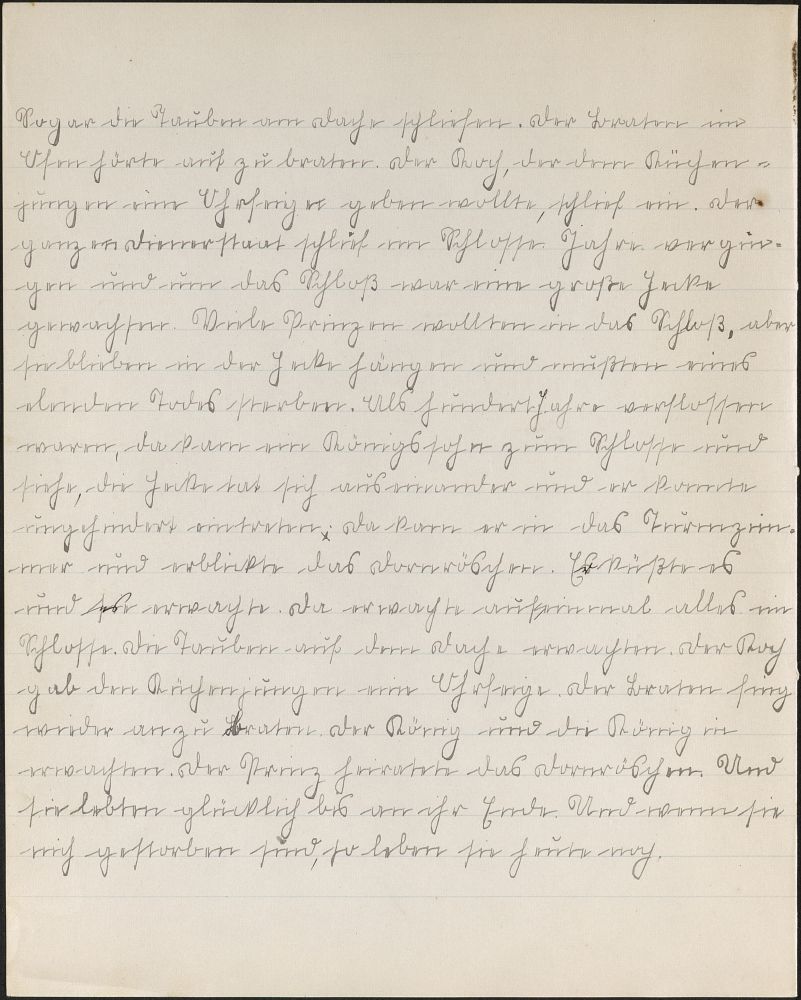 Sogar die Tauben am Dache schliefen. Der Braten im
Ofen hörte auf zu braten. Der Koch, der dem Küchen=
jungen eine Ohrfeige geben wollte, schlief ein. Der
ganzen Dienerstaat schlief im Schlosse. Jahre vergin=
gen und um das Schloß war eine große Hecke
gewachsen. Viele Prinzen wollten in das Schloß, aber
sie blieben in der Hecke hängen und mußten eines
elenden Todes sterben. Als hundert Jahre verflossen
waren, da kam ein Königssohn zum Schlosse und
siehe, die Hecke tat sich auseinander und er konnte
ungehindert eintreten. Da kam er in das Turmzim=
mer und erblickte das Dornröschen. Er küßte es
und es erwachte. Da erwachte aufeinmal alles im
Schlosse. Die Tauben auf dem Dache erwachten. Der Koch
gab den Küchenjungen eine Ohrfeige. Der Braten fing
wieder an zu braten. Der König und die Königin
erwachten. Der Prinz heiratete das Dornröschen. Und
sie lebten glücklich bis an ihr Ende. Und wenn sie
nich gestorben sind, so leben sie heute noch.